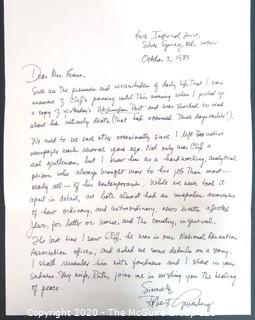 Silver Spring, Md.
October 2, 1983
Dear Mrs. Evans,
Such are the pressures and vicissitudes of daily life that I was
unaware of Cliff's passing until this morning when I picked up
a copy of yesterday's Washington Post and was shocked to read
about his untimely death (that had occurred three days earlier!).
We used to see each other occasionally since I left active
newspaper work several years ago. Not only was Cliff a
real gentleman, but I knew him as a hard working, analytical
person who always brought more to his job than most—
nearly all—of his contemporaries. While we never took it
apart in detail, we both almost had an unspoken awareness
of how ordinary, and extraordinary, news events affected
Jews, for better or worse, and the country, in general.
The last time I saw Cliff, he was in our National Education
Association offices, and asked me some details on a story.
I shall remember him with fondness and I share in your
sadness. My wife, Ruth, joins me in wishing you the healing
of peace.
Sincerely,
Copyright 2020 - The McMahan Group